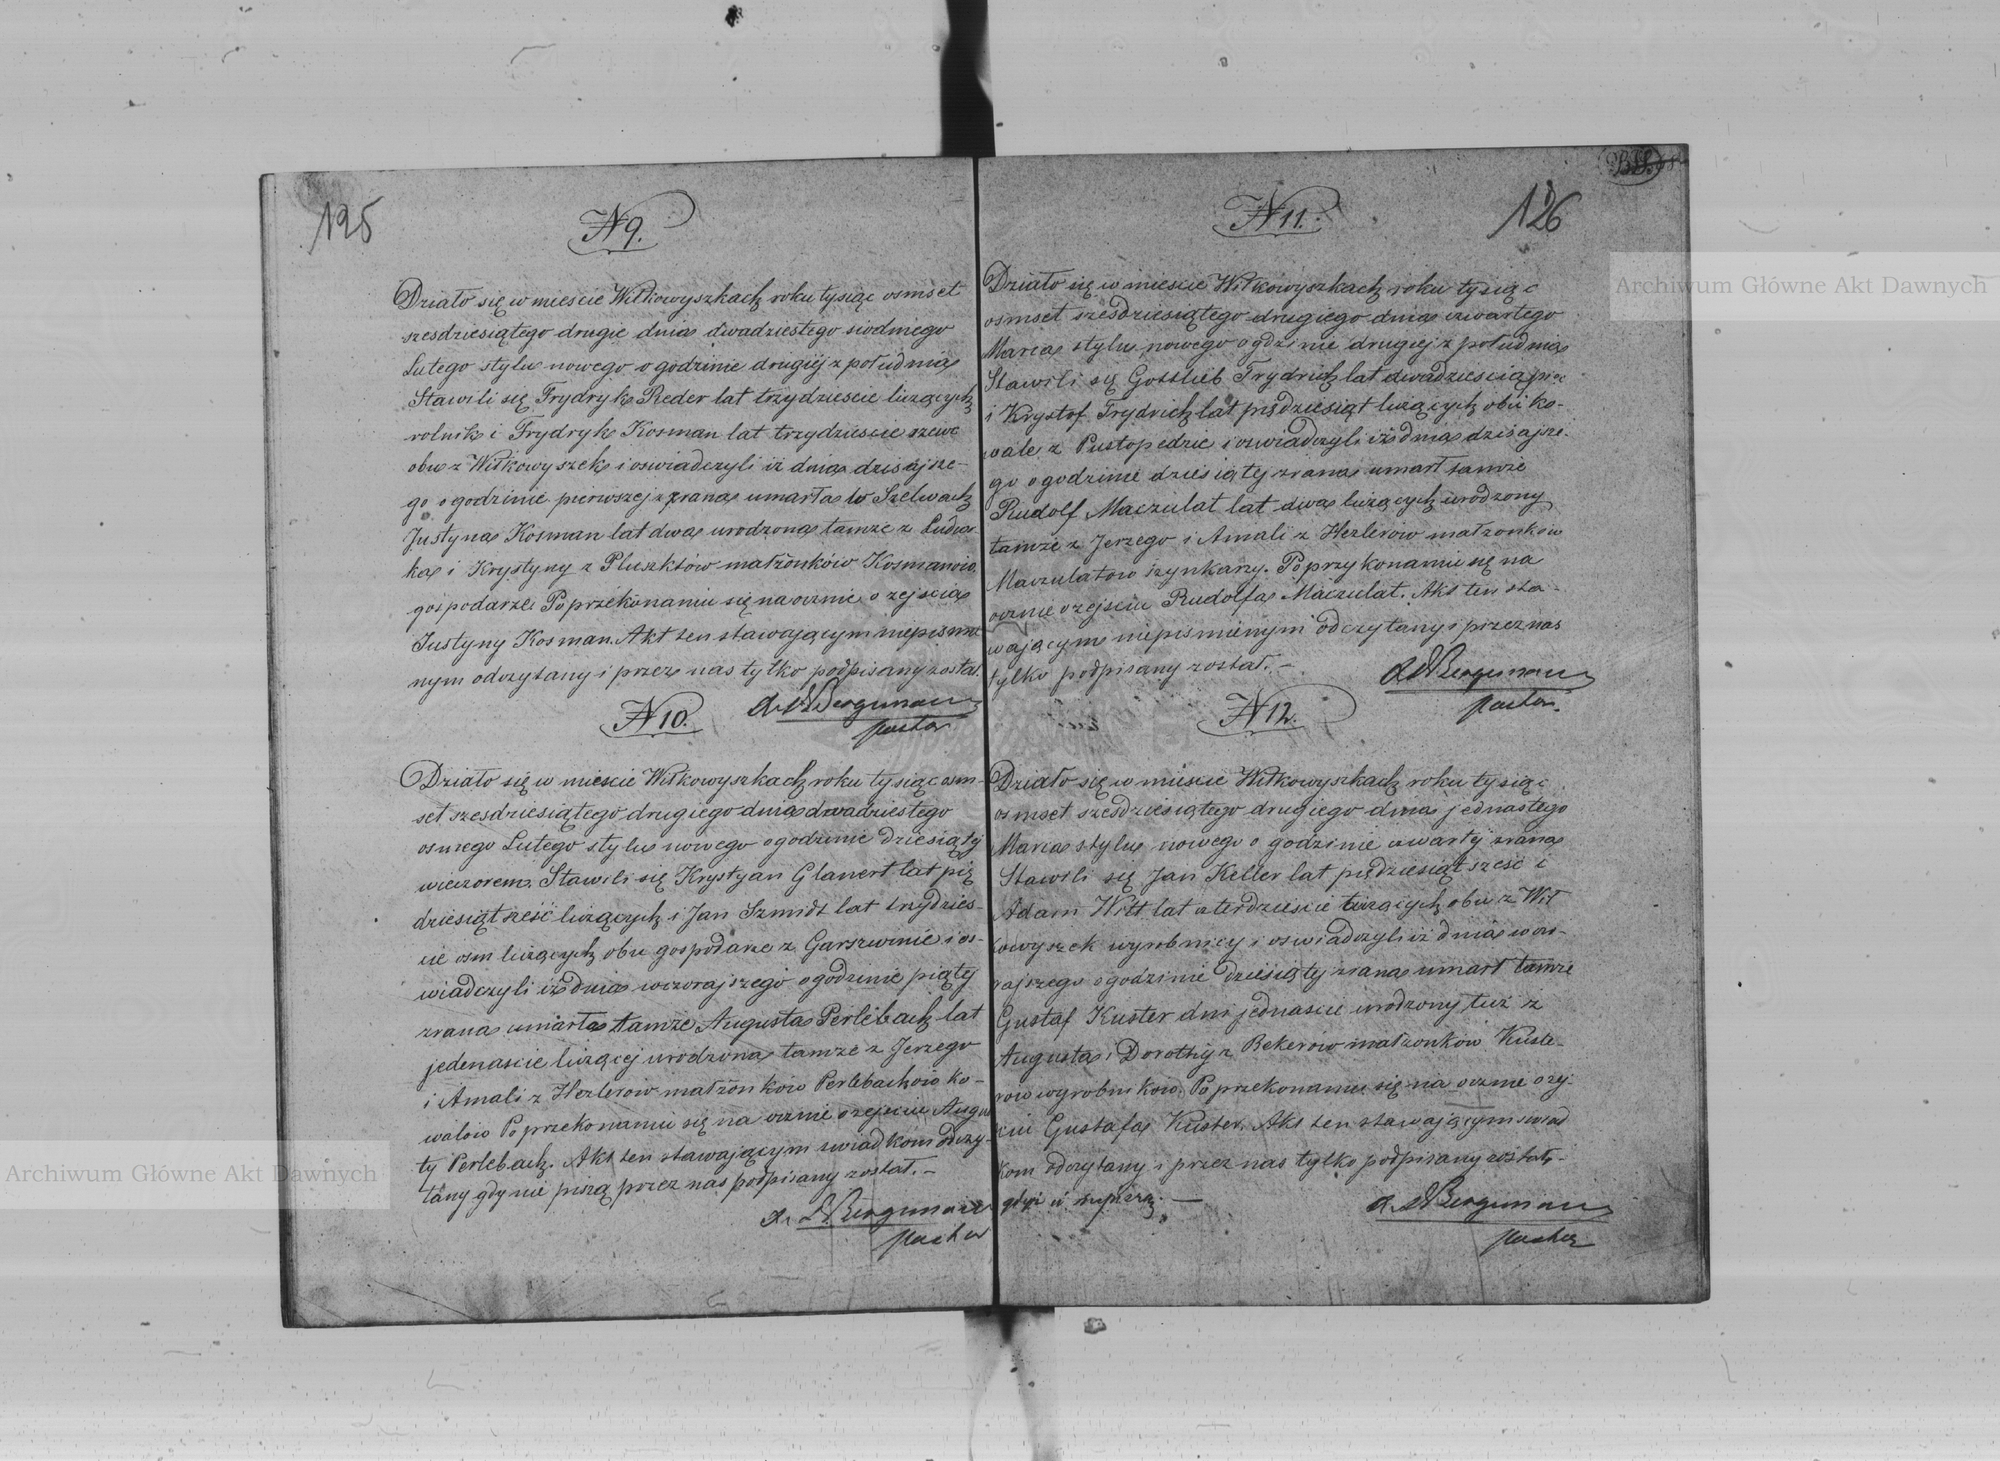 125
N 9.
Działo się w mieście Wiłkowyszkach roku tysiąc osmset
szesdziesiątego drugie dnia dwadziestego siodmego
Lutego stylu nowego o godzinie drugiij z południa
Stawili się Frydryk Reder lat trzydziescie liczących
rolnik i Frydryk Kosman lat trzydziescie szewc
obu z Wiłkowyszek i oswiadczyli iż dnia dzisiajsze-
go o godzinie pierwszej z rana umarła w Szelwach
Justyna Kosman lat dwa urodzona tamże z Ludwi
ka i Krystyny z Pluszktów małżonków Kosmanow
gospodarze Po przekonaniu się naocznie o zejścia
Justyny Kosman. Akt ten stawającym niepismie
nym odczytany i przez nas tylko podpisany został.
A. Bergmann
pastor
N 10.
Działo się w mieście Wiłkowyszkach roku tysiąc osm-
set szesdziesiątego drugiego dnia dwadziestego
osmego Lutego stylu nowego o godzinie dziesiątij
wieczorem. Stawili się Krystyan Glanert lat pię
dziesiąt sześć liczących i Jan Szmidt lat trzydzies-
cie osm liczących obu gospodarze z Garszwinie i os-
wiadczyli iż dnia wczorajszego o godzinie piątej
z rana umarła tamże Augusta Perlebach lat
jedenascie liczącej urodzona tamże z Jerzego
i Amali z Hezlerow małżonkow Perlebachow ko-
walow Po przekonaniu się na ocznie o zejsciu Augus
ty Perlebach. Akt ten stawającym swiadkom odczy-
tany gdy nie piszą przez nas podpisany został. -
A. Bergmann
pastor
126
N 11.
Działo się w mieście Wiłkowyszkach roku tysiąc
osmset szesdziesiątego drugiego dnia czwartego
Marca stylu nowego o gdzinie drugiej z południa
Stawili się Gottlieb Frydrich lat dwadziescia pięc
i Krystof Frydrich lat pięдziesiąt liczących obu ko-
wale z Pustopedzie i oswiadczyli iż dnia dzisiajsze-
go o godzinie dziesiątej z rana umarł tamże
Rudolf Maczulat lat dwa liczących urodzony
tamże z Jerzego i Amali z Hezlerow małzonkow
Maczulatow szynkarzy. Po przykonaniu się na
ocznie o zejsciu Rudolfa Maczulat. Akt ten sta-
wającym niepismienym odczytany i przez nas
tylko podpisany został. -
A. Bergmann
pastor.
N 12.
Działo się w mieście Wiłkowyszkach roku tysiąc
osmset szesdziesiątego drugiego dnia jednastego
Marca stylu nowego o godzinie czwartij z rana
Stawili się Jan Keller lat piędziesiąt sześć i
Adam Witt lat czterdziescie liczących obu z Wił
kowyszek wyrobnicy i oswiadczyli iż dnia wczo-
rajszego o godzinie dziesiątej z rana umarł tamże
Gustaf Kuster dni jednascie urodzony tuż z
Augusta i Dorothij z Bekerow małzonków Kuste-
row wyrobnikow. Po przekonaniu się na ocznie o zej-
sciu Gustafa Kuster. Akt ten stawającym swiad
kom odczytany i przez nas tylko podpisany został.
gdyż ci niepiszą. —
A. Bergmann
pastor
Archiwum Główne Akt Dawnych
Archiwum Główne Akt Dawnych